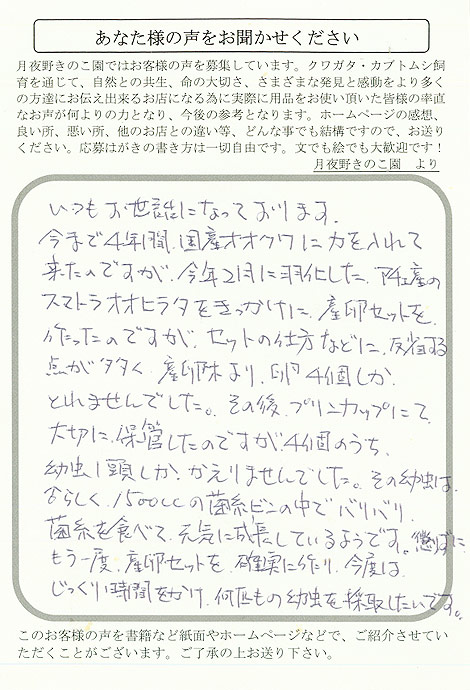 あなた様の声をお聞かせください
月夜野きのこ園ではお客様の声を募集しています。クワガタ・カブトムシ飼
育を通じて、自然との共生、命の大切さ、さまざまな発見と感動をより多く
の方達にお伝え出来るお店になる為に実際に用品をお使い頂いた皆様の率直
なお声が何よりの力となり、今後の参考となります。ホームページの感想、
良い所、悪い所、他のお店との違い等、どんな事でも結構ですので、お送り
ください。応募はがきの書き方は一切自由です。文でも絵でも大歓迎です！
月夜野きのこ園　より
いつもお世話になっております。
今まで4年間、国産オオクワに力を入れて
来たのですが、今年2月に羽化した、アチェ産の
スマトラオオヒラタをきっかけに、産卵セットを、
作ったのですが、セットの仕方などに、反省する
点が多多く、産卵木より、卵4個しか
とれませんでした。その後、プリンカップにて、
大切に、保管したのですが、4個のうち、
幼虫1頭しか、かえりませんでした。その幼虫は、
どうしく、1500ccの菌糸ビンの中でバリバリ、
菌糸を食べて、元気に成長しているようです。懲ずに、
もう一度、産卵セットを、確実に作り、今度は
じっくり時間をかけ、何匹もの幼虫を採取したいです。
このお客様の声を書籍など紙面やホームページなどで、ご紹介させてい
ただくことがございます。ご了承の上お送り下さい。